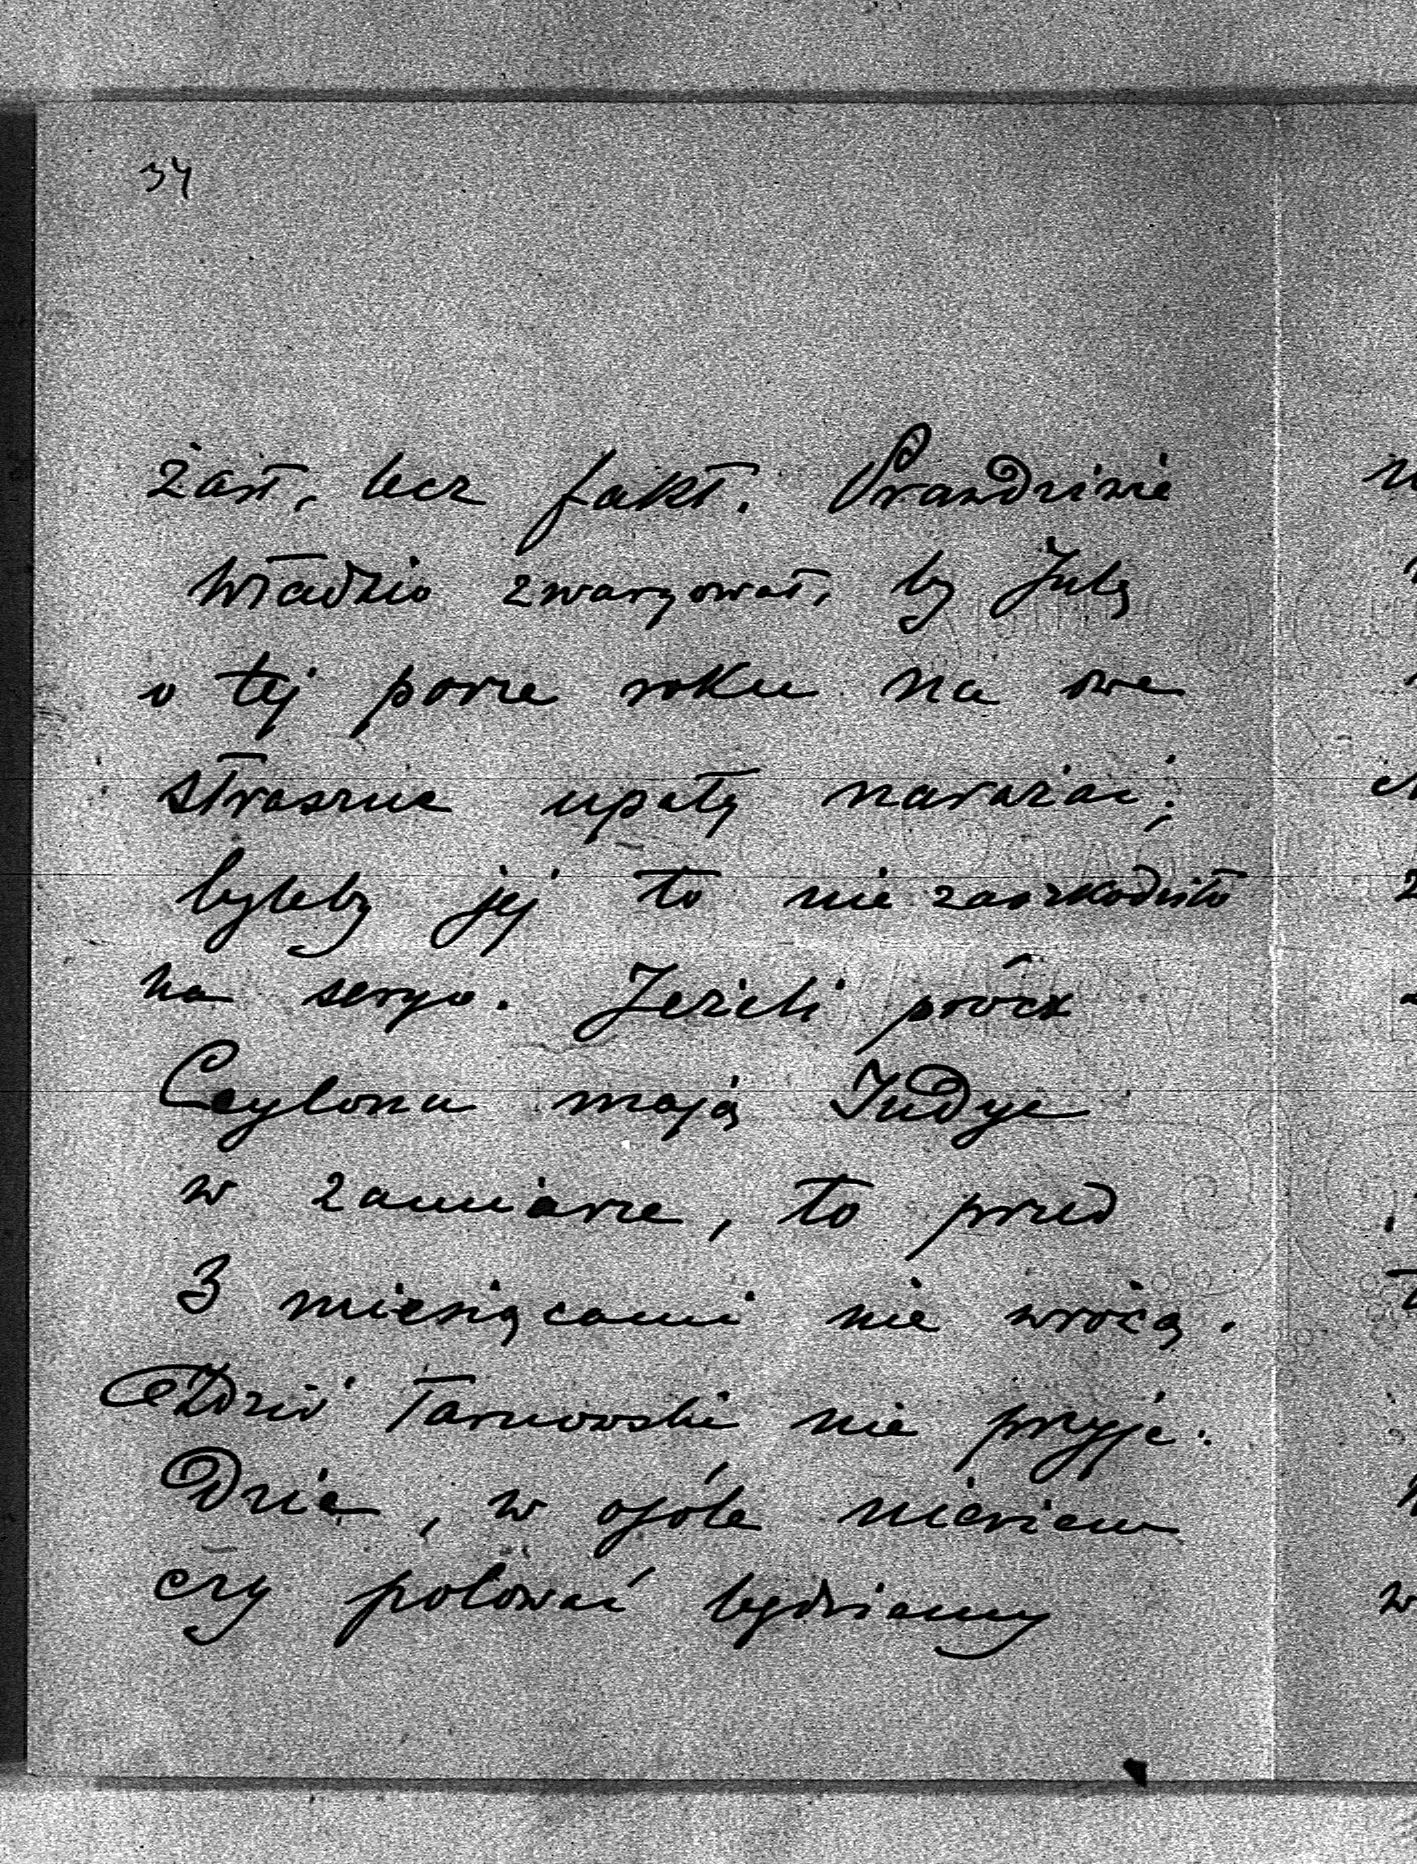 34
żart, lecz fakt. Prawdziwie
Władzio zwaryował, by Julę
o tej porze roku na owe
straszne upały narażać;
byleby jej to nie zaszkodziło
na seryo. Jeżeli prócz
Ceylonu mają Indye
w zamiarze, to przed
3 miesiącami nie wrócą.
Zdziś Tarnowski nie przyje-
dzie, w ogóle niewiem
czy polować będziemy